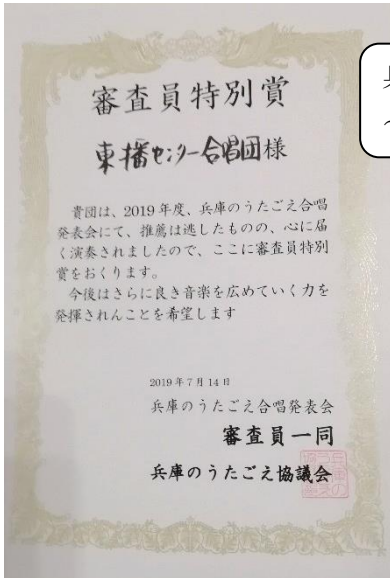 審査員特別賞
東播センター合唱団様
貴団は、2019年度、兵庫のうたごえ合唱
発表会にて、推薦は逃したものの、心に届
く演奏されましたので、ここに審査員特別
賞をおくります。
今後はさらに良き音楽を広めていく力を
発揮されんことを希望します
2019年7月14日
兵庫のうたごえ合唱発表会
審査員一同
兵庫のうたごえ協議会